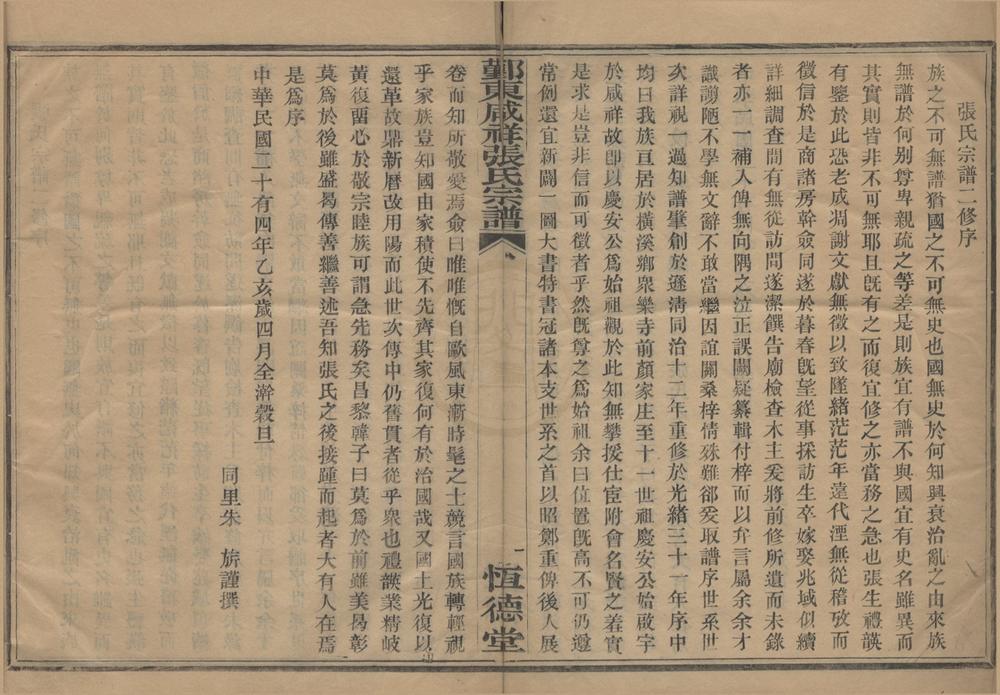 張氏宗譜二修序
族之不可無譜猶國之不可無史也國無史於何知興衰治亂之由來族
無譜於何別尊卑親疏之等差是則族宜有譜不與國宜有史名雖異而
其實則皆非不可無耶且既有之而復宜修之亦當務之急也張生禮謨
有鑒於此恐老成凋謝文獻無徵以致墜緒茫茫年遠代湮無從稽攷而
徵信於是商諸房幹僉同遂於暮春既望從事採訪生卒嫁娶兆域似續
詳細調查間有無從訪問遂潔饌告廟檢查木主爰將前修所遺而未錄
者亦一一補入俾無向隅之泣正誤闕疑纂輯付梓而以弁言屬余余才
識謭陋不學無文辭不敢當繼因誼關桑梓情殊難卻爰取譜序世系世
次詳視一過知譜肇創於遜清同治十二年重修於光緒三十一年序中
均曰我族亘居於橫溪鄉衆樂寺前顏家庄至十一世祖慶安公始啟宇
於咸祥故卽以慶安公爲始祖觀於此知無攀援仕宦附會名賢之羞實
是求是豈非信而可徵者乎然既尊之爲始祖余曰位置既高不可仍邊
常例還宜新闢一圖大書特書冠諸本支世系之首以昭鄭重俾後人展
鄞東咸祥張氏宗譜
一
恆德堂
卷而知所敬愛焉僉曰唯唯慨自歐風東漸時髦之士競言國族轉輕視
乎家族豈知國由家積使不先齊其家復何有於治國哉又國土光復以
還革故鼎新曆改用陽而此世次傳中仍舊貫者從乎衆也禮謨業精岐
黃復畱心於敬宗睦族可謂急先務矣昌黎韓子曰莫爲於前雖美曷彰
莫爲於後雖盛曷傳善繼善述吾知張氏之後接踵而起者大有人在焉
是爲序
中華民國二十有四年乙亥歲四月全澣穀旦
同里朱 旂謹撰